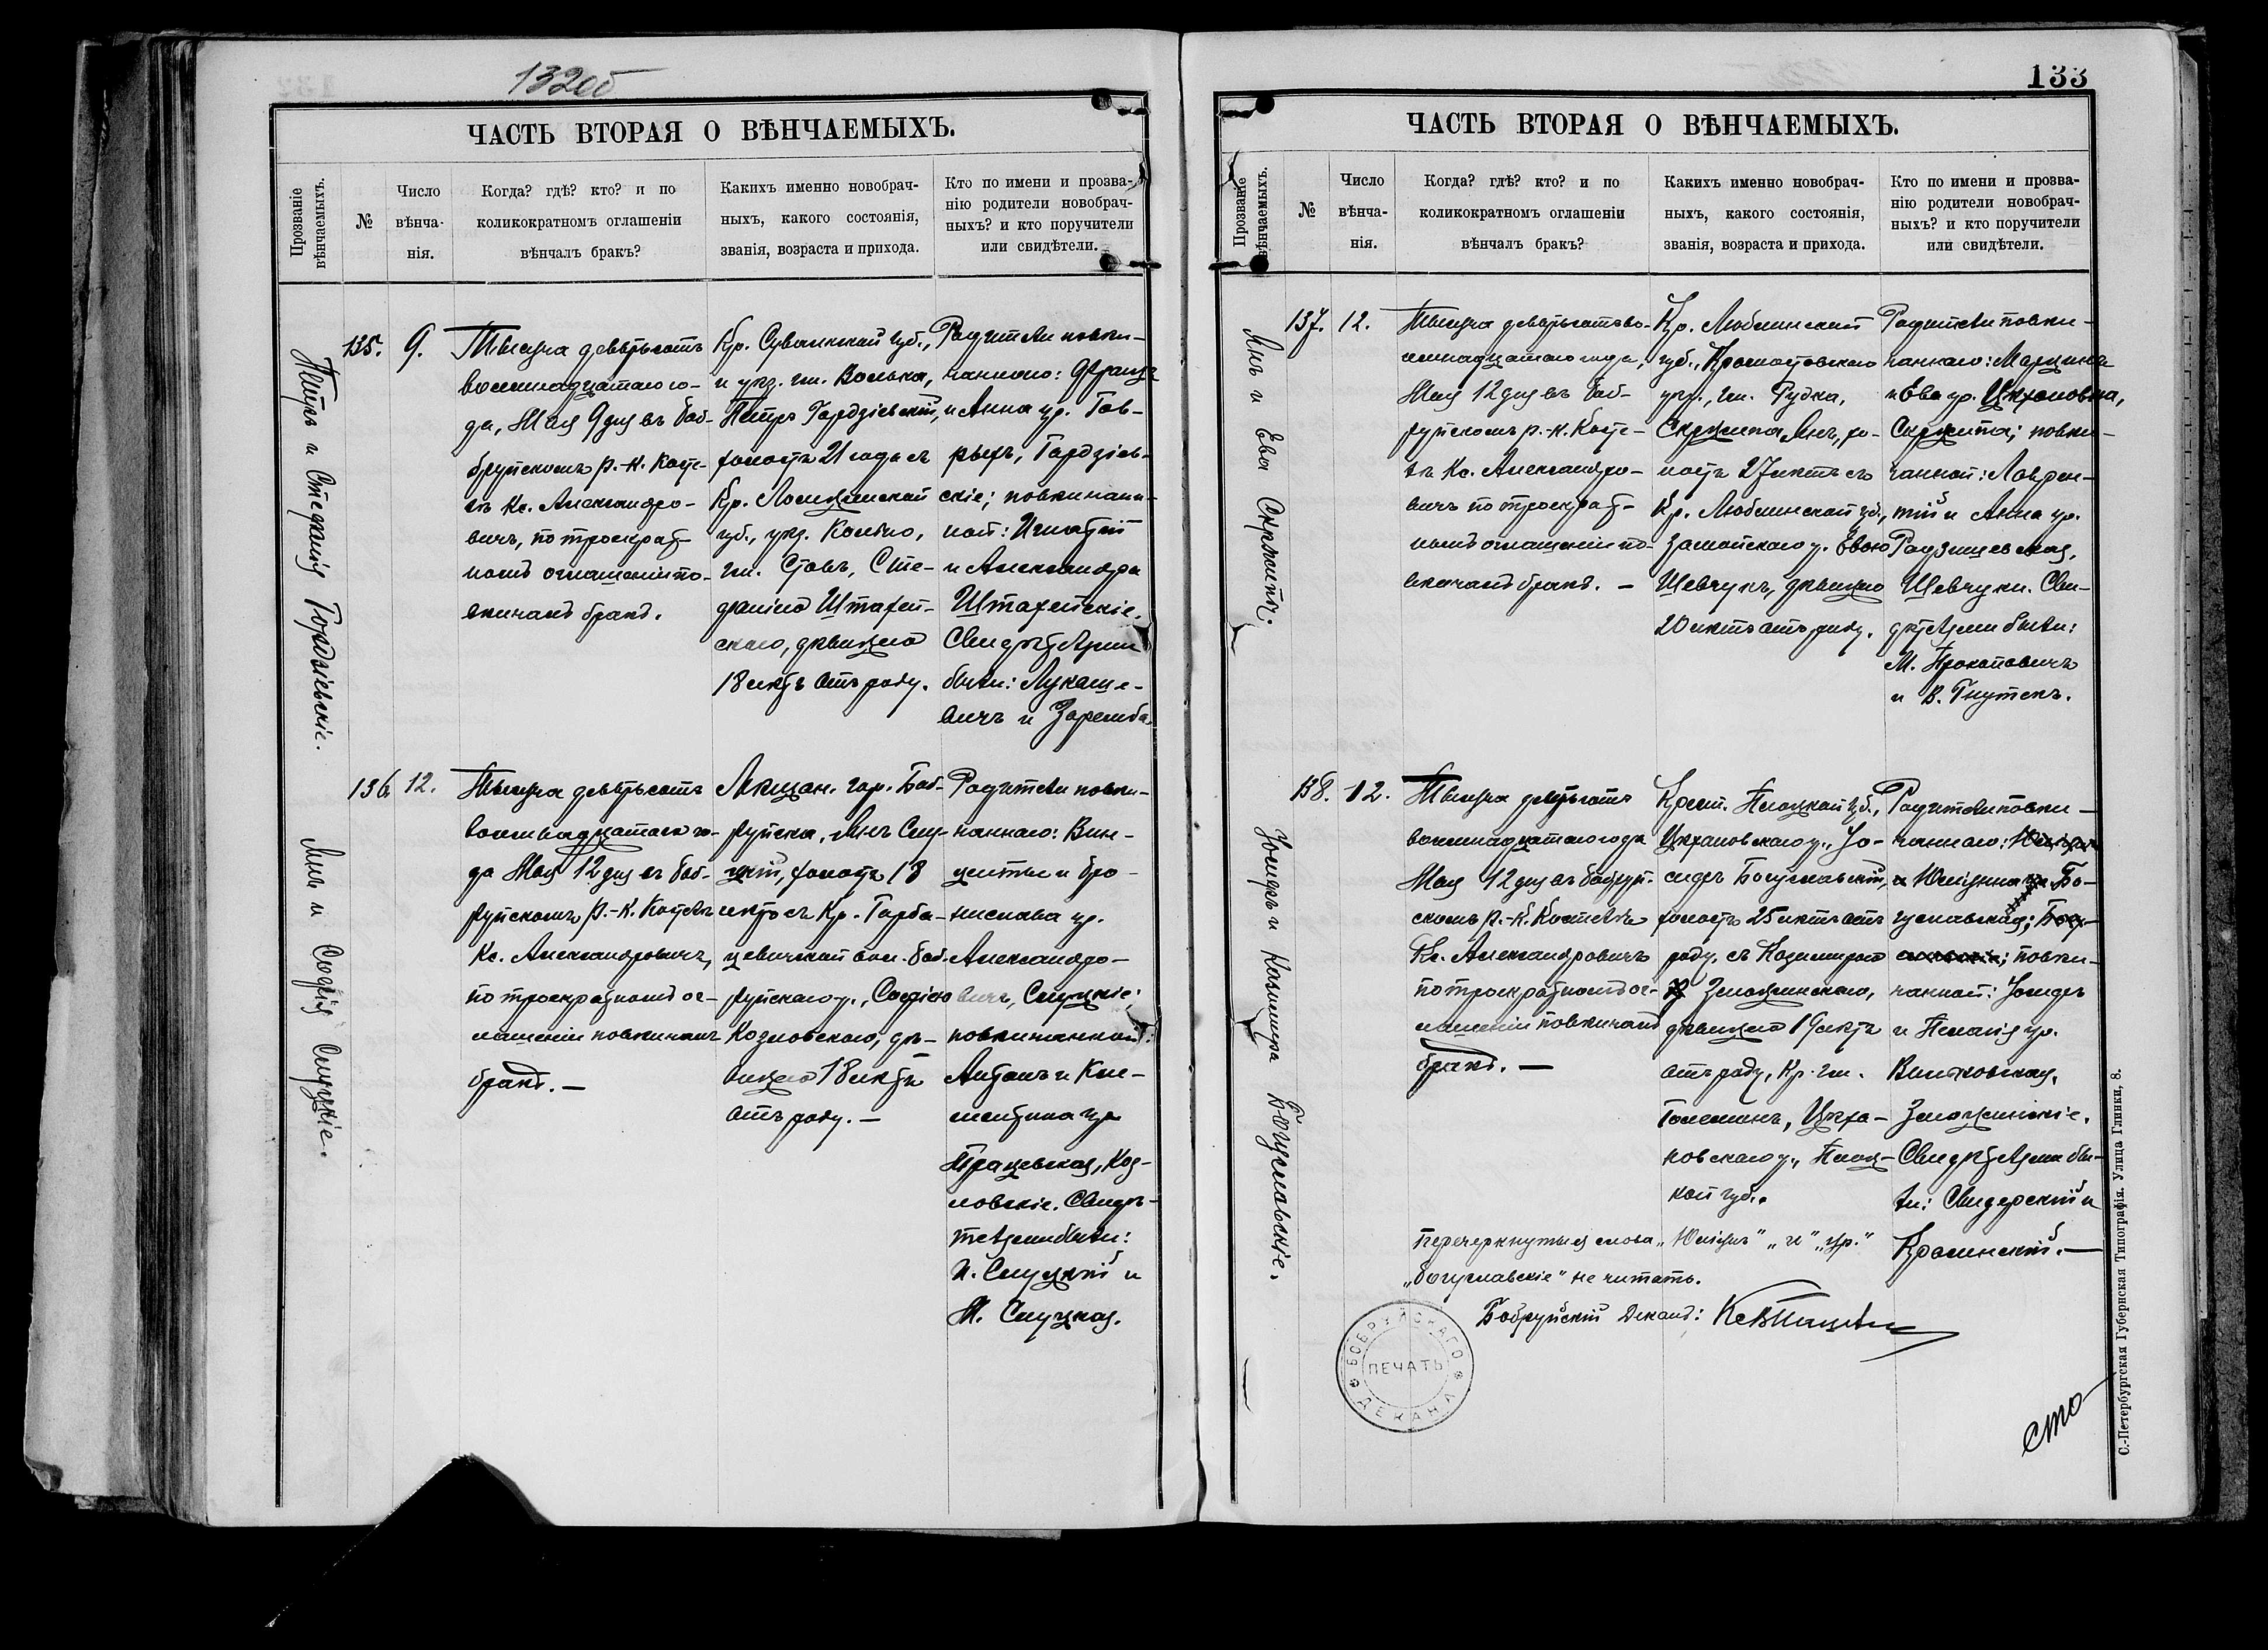 132об
ЧАСТЬ ВТОРАЯ О ВѢНЧАЕМЫХЪ.
Прозваніе вѣнчаемыхъ.
№
Число вѣнча-нія.
Когда? гдѣ? кто? и по
коликократномъ оглашеніи
вѣнчалъ бракъ?
Какихъ именно новобрач-
ныхъ, какого состоянія,
званія, возраста и прихода.
Кто по имени и прозва-
нію родители новобрач-
ныхъ? и кто поручители
или свидѣтели.
Петръ и Стефанія Гордзіевскіе.
135.
9.
Тысяча девятьсотъ
восемнадцатаго го-
да, Мая 9 дня въ Боб-
бруйскомъ р.-к. Косте-
лѣ Кс. Александро-
вичъ, по троекрат-
номъ оглашеніи по-
вѣнчалъ бракъ.
Кр. Сувалкской губ.,
и уѣз. гм. Волька,
Петръ Гордзіевскій,
холостъ 21 года съ
Кр. Ломжинской
губ., уѣз. Кольно,
гм. Ставъ, Сте-
фаніею Штахель-
скою, дѣвицею
18 лѣтъ отъ роду.
Родители новѣн-
чаннаго: Францъ
и Анна ур. Гав-
рыхъ, Гордзіев-
скіе; повѣнчан-
ной: Игнатій
и Александра
Штахельскіе.
Свидѣтелями
были: Лукаше-
вичъ и Заремба.
Янъ и Софія Слуцкіе.
136.
12.
Тысяча девятьсотъ
восемнадцатаго го-
да Мая 12 дня въ Боб-
руйскомъ Р.-К. Костелѣ
Кс. Александровичъ,
по троекратномъ ог-
лашеніи повѣнчалъ
бракъ. —
Мѣщан. гор. Боб-
руйска, Янъ Слу-
цкій, холостъ 18
лѣтъ съ Кр. Горба-
цевичской вол. Боб-
руйскаго у., Софіею
Козловскою, дѣ-
вицею 18 лѣтъ
отъ роду. —
Родители повѣн-
чаннаго: Вин-
центы и Бро-
нислава ур.
Александро-
вичъ, Слуцкіе;
повѣнчанной:
Антонъ и Кле-
ментина ур.
Козловскіе. Свидѣ-
телями были:
Слуцкій и
М. Слуцкая.
133
ЧАСТЬ ВТОРАЯ О ВѢНЧАЕМЫХЪ.
Прозваніе вѣнчаемыхъ.
№
Число вѣнча-нія.
Когда? гдѣ? кто? и по
коликократномъ оглашеніи
вѣнчалъ бракъ?
Какихъ именно новобрач-
ныхъ, какого состоянія,
званія, возраста и прихода.
Кто по имени и прозва-
нію родители новобрач-
ныхъ? и кто поручители
или свидѣтели.
Янъ и Ева Скржипы.
137.
12.
Тысяча девятьсотъ во-
семнадцатаго года,
Мая 12 дня въ Боб-
руйскомъ р.-к. Косте-
лѣ Кс. Александро-
вичъ по троекрат-
номъ оглашеніи по-
вѣнчалъ бракъ. —
Кр. Люблинской
губ., Красноставскаго
уѣз., гм. Рудка,
Скржипа Янъ, хо-
лостъ 27 лѣтъ съ
Кр. Люблинской губ.,
Замойскаго у. Евою
Шевчукъ, дѣвицею
20 лѣтъ отъ роду.
Родители повѣн-
чаннаго: Марцинъ
и Ева ур.
Скржипа; повѣн-
чанной: Лаврен-
тій и Анна ур.
Шевчуки. Сви-
дѣтелями были:
М. Прокоповичъ
и В. Гнутекъ.
Юзефъ и Казимира Богуславскіе.
138.
12.
Тысяча девятьсотъ
восемнадцатаго года
Мая 12 дня въ Бобруй-
скомъ р.-к. Костелѣ
Кс. Александровичъ
по троекратномъ ог-
лашеніи повѣнчалъ
бракъ. —
Крест. Плоцкой губ.,
Цѣхановскаго у., Ю-
зефъ Богуславскій,
холостъ 25 лѣтъ отъ
роду, съ Казимирою
дѣвицею 19 лѣтъ
отъ роду, Кр. гм.
Големинъ, Цѣха-
новскаго у., Плоц-
кой губ..
Родители повѣн-
чаннаго:
Бо-
гуславская;
повѣн-
чанной: Юзефъ
и Пелагія ур.
Вильковская,
Свидѣтелями бы-
ли: Свидерскій и
Красинскій. —
Перечеркнутыя слова „Юліанъ" „и" „ур."
„Богуславскіе" не читать.
Бобруйскій Деканъ:
БОБРУЙСКАГО ДЕКАНА
ПЕЧАТЬ
сто
С.-Петербургская Губернская Типографія. Улица Глинки, 8.